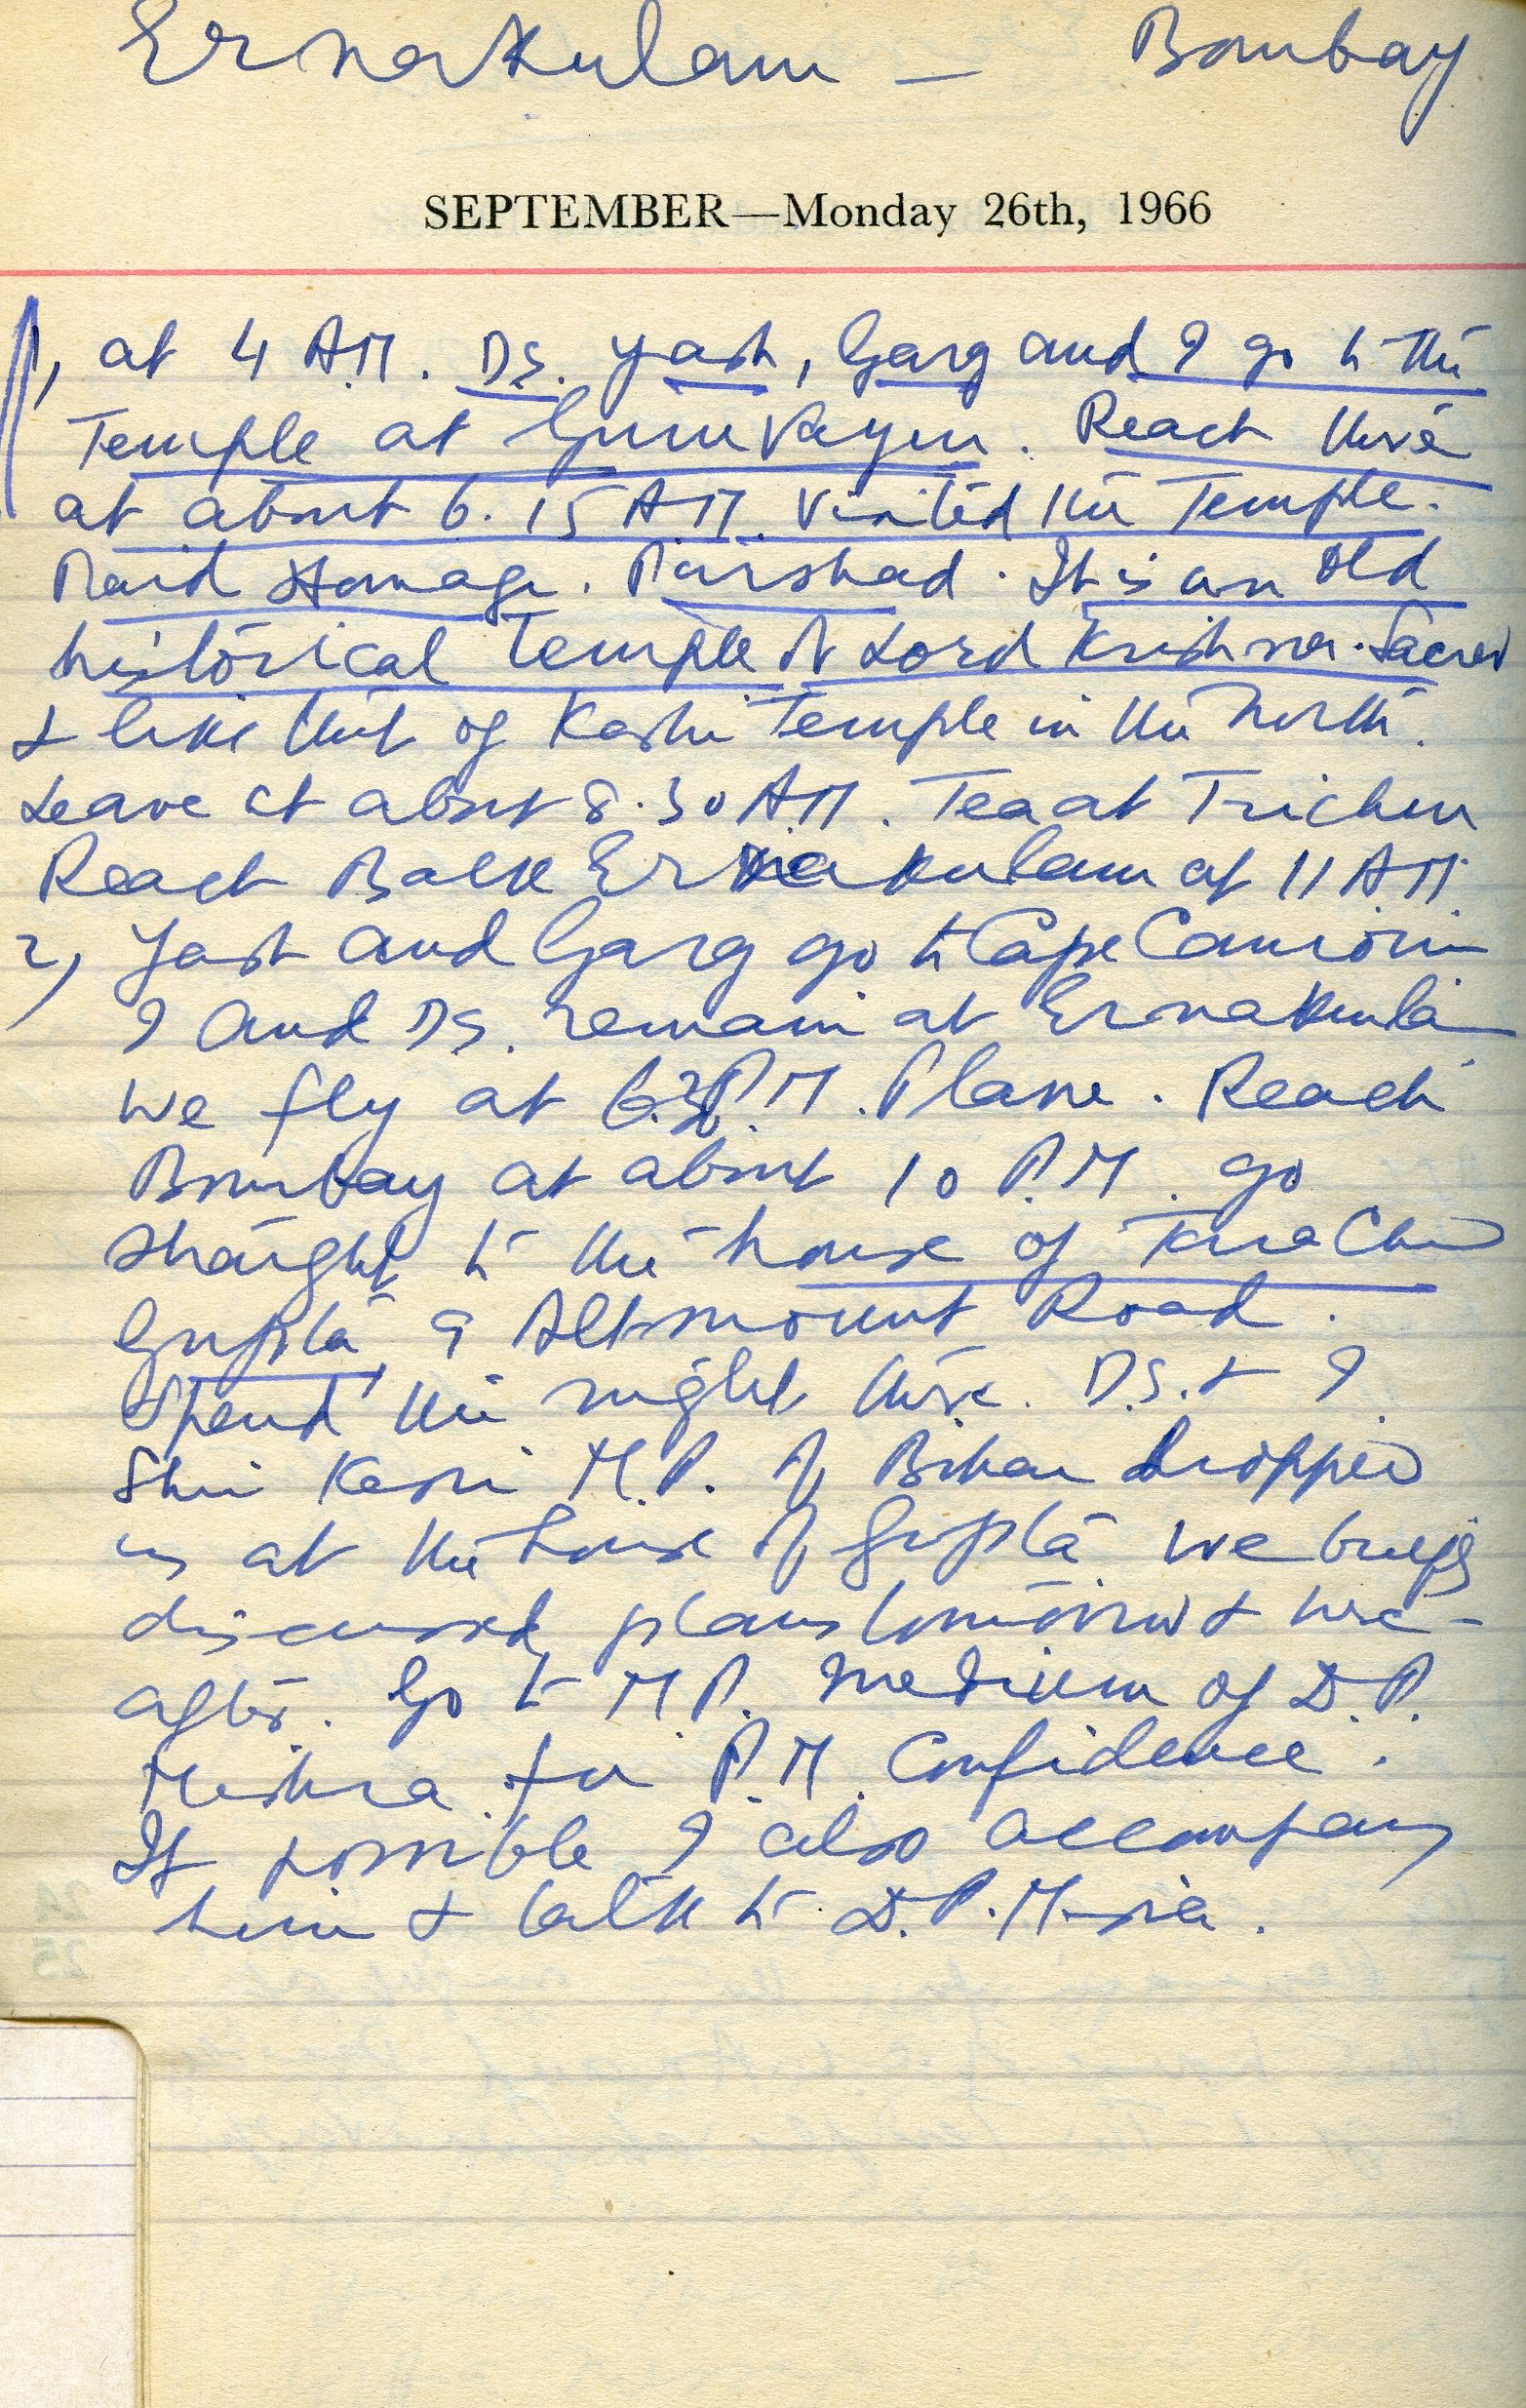 Ernakulam - Bombay
SEPTEMBER—Monday 26th, 1966
1, at 4 A.M. D.S. Yash, Garg and I go to the
Temple at Guruvayur. Reach there
at about 6.15 A.M. Visited the Temple.
Paid Homage. Parshad. It is an old
historical temple of Lord Krishna. Sacred
& like that of Kashi Temple in the North.
Leave at about 8.30 A.M. Tea at Trichur
Reach Back Ernakulam at 11 A.M.
2, Yash and Garg go to Cape Camorin
I and D.S. remain at Ernakulam
we fly at 6.30 P.M. Plane. Reach
Bombay at about 10 P.M. go
straight to the house of Tara Chand
Gupta, 9 Altamount Road.
Spend the night there. D.S. & I.
Shri Kesri M.P. of Bihar dropped
us at the house of Gupta. We briefly
discussed plans tomorrow & here-
after. Go to M.P. medium of D.P.
Mishra for P.M. Confidence.
If possible I also accompany
him & talk to D.P. Misra.